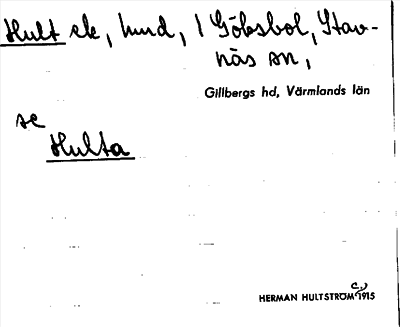 Hult ek, hmd, i Göksbol, Stav-
näs sn,
Gillbergs hd, Värmlands län
se
Hulta
HERMAN HULTSTRÖM c.1915